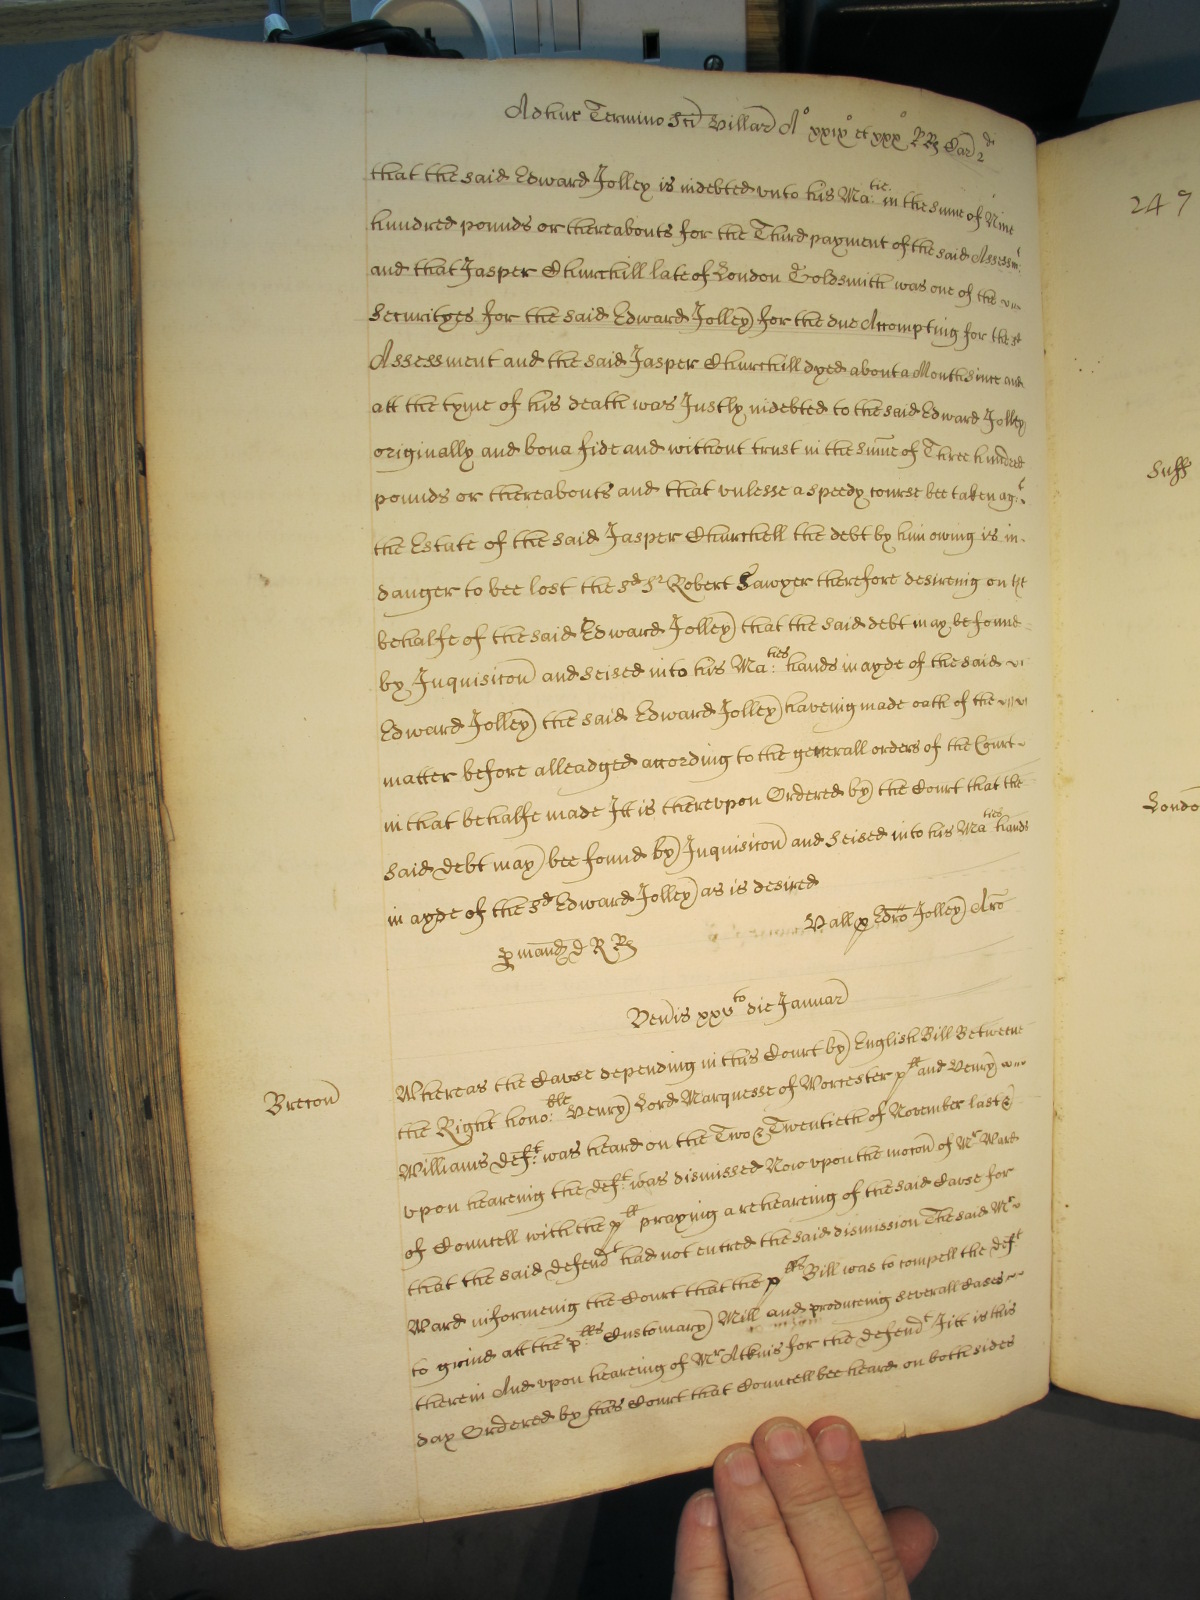 Adhuc Termino Sci Hillar A° xxix° et xxx° RRs Car 2di
that the said Edward Jolley is indebted vnto his Ma:tie in the sume of Nine
hundred pounds or thereabouts for the Third payment of the said Assessmt:
and that Jasper Churchill late of London Goldsmith was one of the
Securityes for the said Edward Jolley for the due Accompting for the sd
Assessment and the said Jasper Churchill dyed about a Month since and
att the tyme of his death was Justly indebted to the said Edward Jolley
originally and bona fide and without trust in the sume of Three hundred
pounds or thereabouts and that vnlesse a speedy course bee taken agt:
the Estate of the said Jasper Churchell the debt by him owing is in
danger to bee lost the sd Sr Robert Sawyer therefore desireing on the
behalfe of the said Edward Jolley that the said debt may be found
by Inquisicon and seised into his Ma:ties hands in ayde of the said
Edward Jolley the said Edward Jolley haveing made oath of the
matter before alleadged according to the generall orders of the Court
in that behalfe made Itt is therevpon Ordered by the Court that the
said debt may bee found by Inquisicon and seised into his Ma:ties hands
in ayde of the sd Edward Jolley as is desired
Hall p Edro Jolley Are
p mand d R Rs
Ven'is xxvto die Januar
Brecon
Whereas the Cause depending in this Court by English Bill Betweene
the Right hono:ble Henry Lord Marquesse of Worcester plt and Henry
Williams Deft: was heard on the Two & Twentieth of November last &
vpon heareing the Deft: was dismissed Now vpon the mocon of Mr Ward
of Councell with the plt praying a reheareing of the said Cause for
that the said Defendt had not entred the said dismission The said Mr
Ward informeing the Court that the plts Bill was to compell the Deft
to grind att the plts Customary Mill and produceing severall Cases
therein And vpon heareing of Mr Atkins for the Defendt Itt is this
day Ordered by this Court that Councell bee heard on both sides
247
Suff
Londo